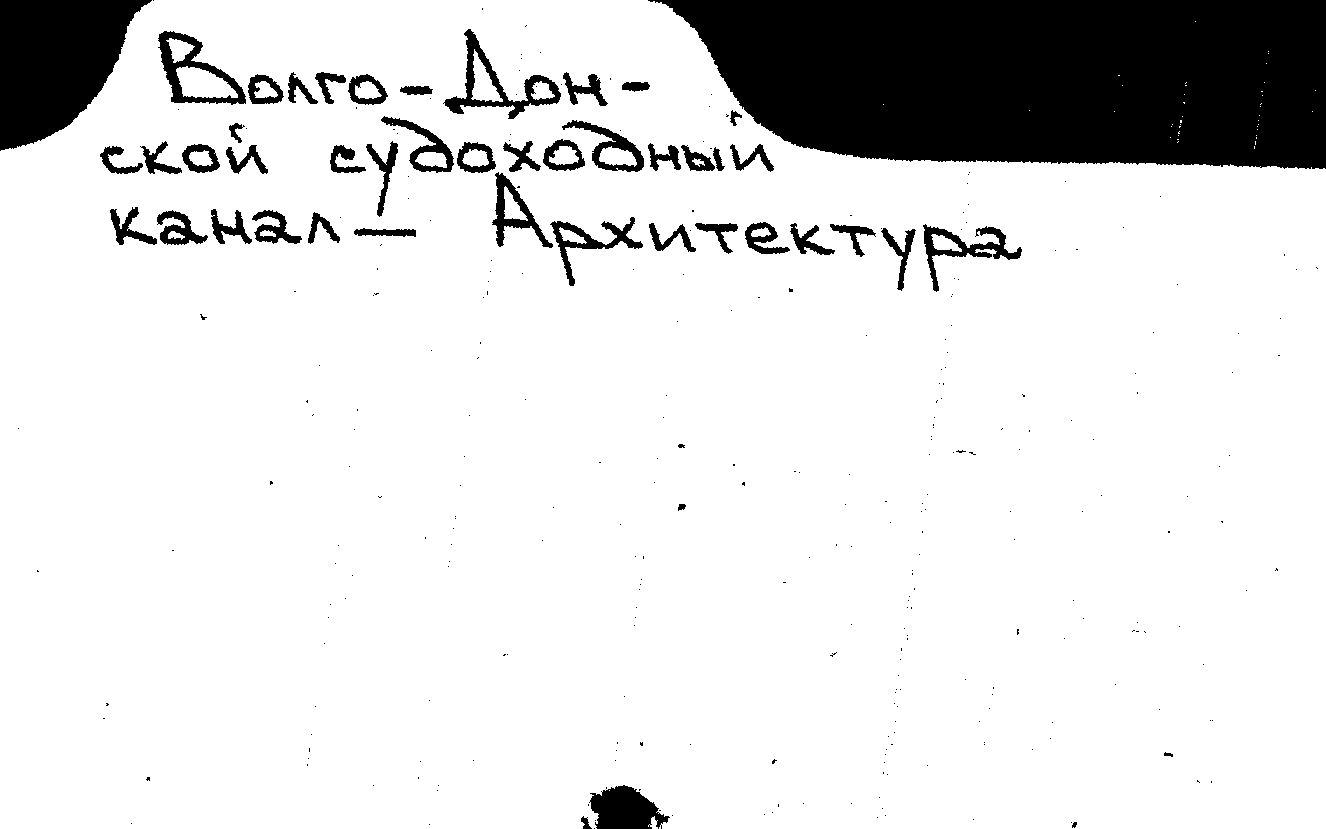 Волго-Дон-
ской судоходный
канал— Архитектура